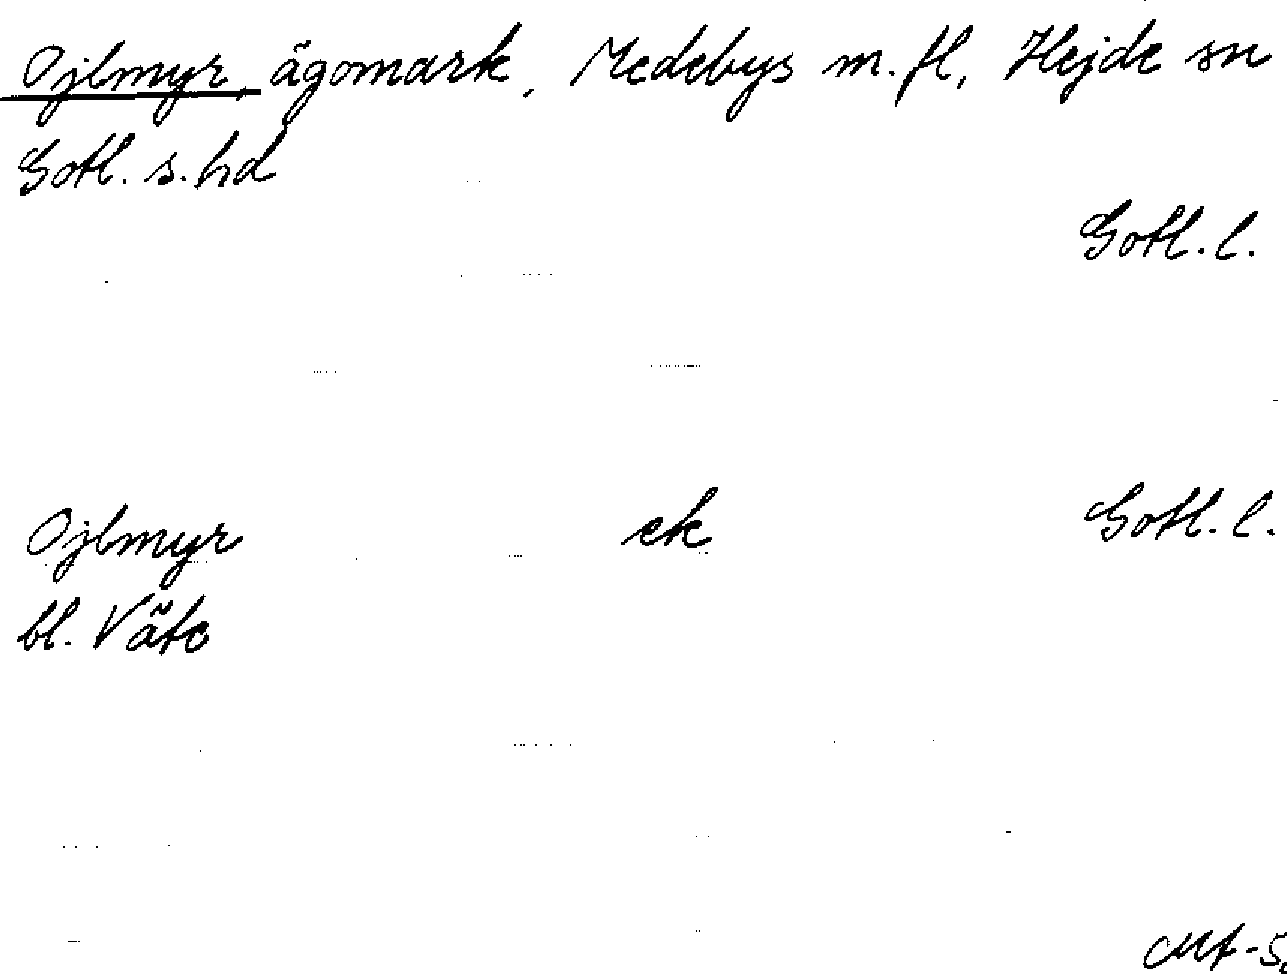 Ojlmyr, ägomark, Medebys m.fl, Hejde sn
Gotl. s. hd
Gotl. l.
Ojlmyr ek Gotl. l.
bl. Väte